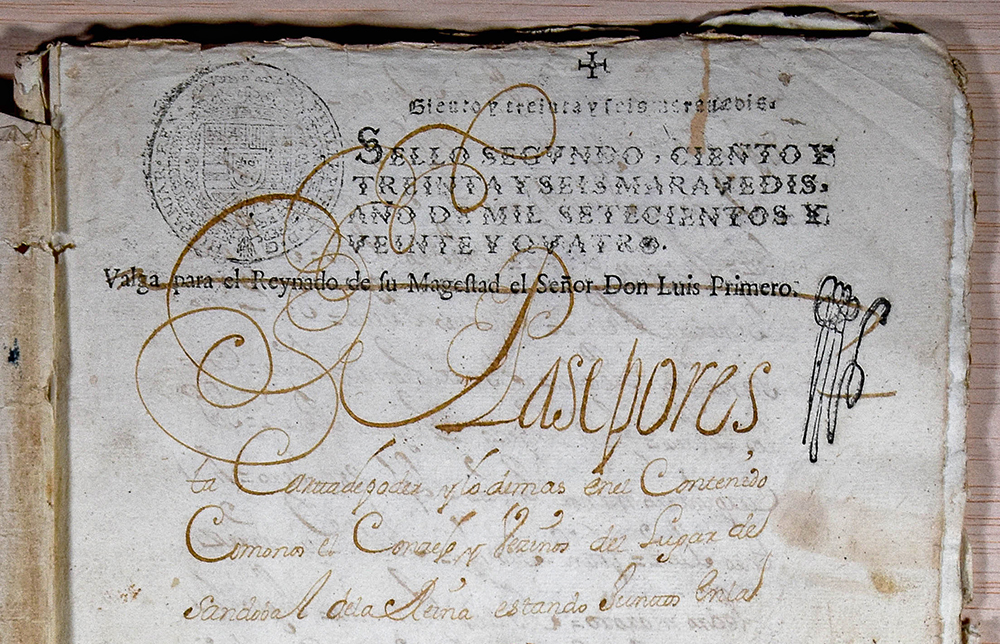 Ciento y treinta y seis maravedis.
SELLO SEGVNDO, CIENTO Y
TREINTA Y SEIS MARAVEDIS,
AÑO DE MIL SETECIENTOS Y
VEINTE Y QVATRO.
Valga para el Reynado de su Magestad el Señor Don Luis Primero.
Sasepores
ta Cartadepoder y lodemas enel Contenido
Comonos el Conzejo y Vezinos del Lugar de
Sandobal dela Reina estando Juntos Enla